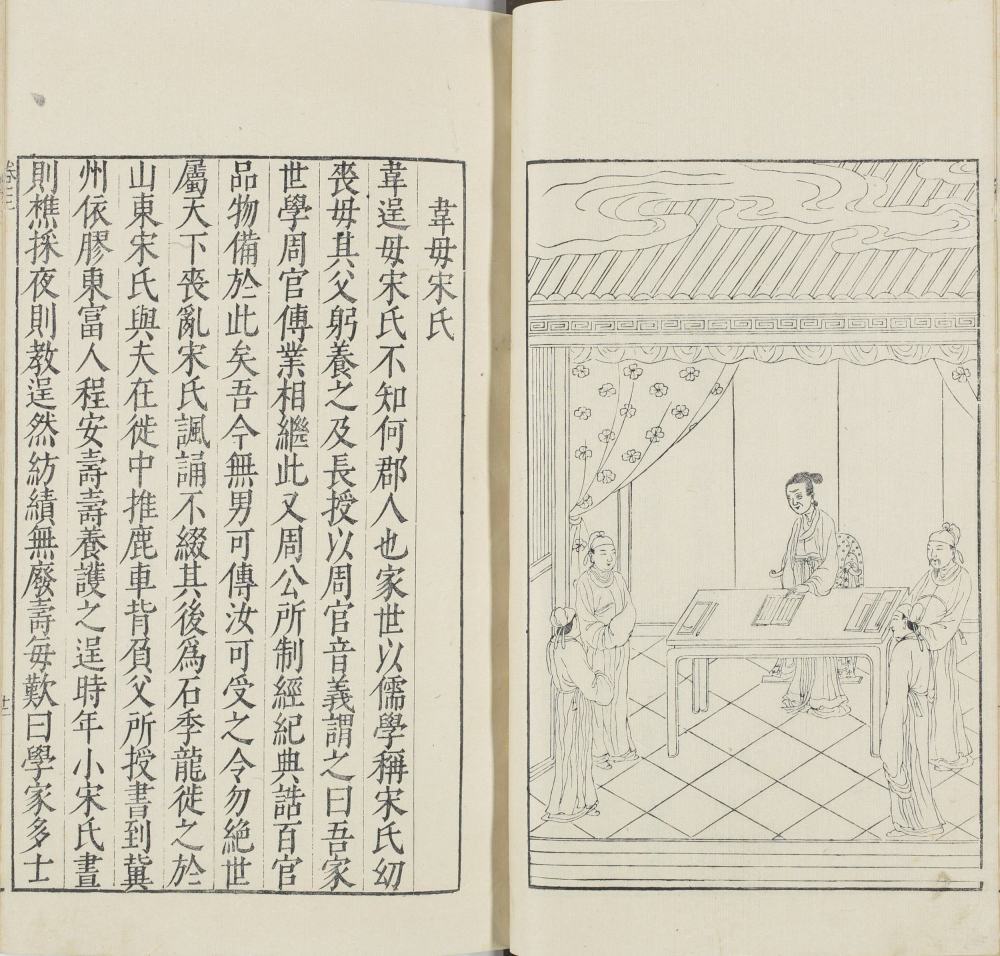 韋母宋氏
韋逞母宋氏不知何郡人也家世以儒學稱宋氏幼
喪母其父躬養之及長授以周官音義謂之曰吾家
世學周官傳業相繼此又周公所制經紀典誥百官
品物備於此矣吾今無男可傳汝可受之令勿絶世
屬天下喪亂宋氏諷誦不綴其後爲石季龍徙之於
山東宋氏與夫在徙中推鹿車背負父所授書到冀
州依膠東富人程安壽壽養護之逞時年小宋氏晝
則樵採夜則教逞然紡績無廢壽每歎曰學家多士
卷三
廿二